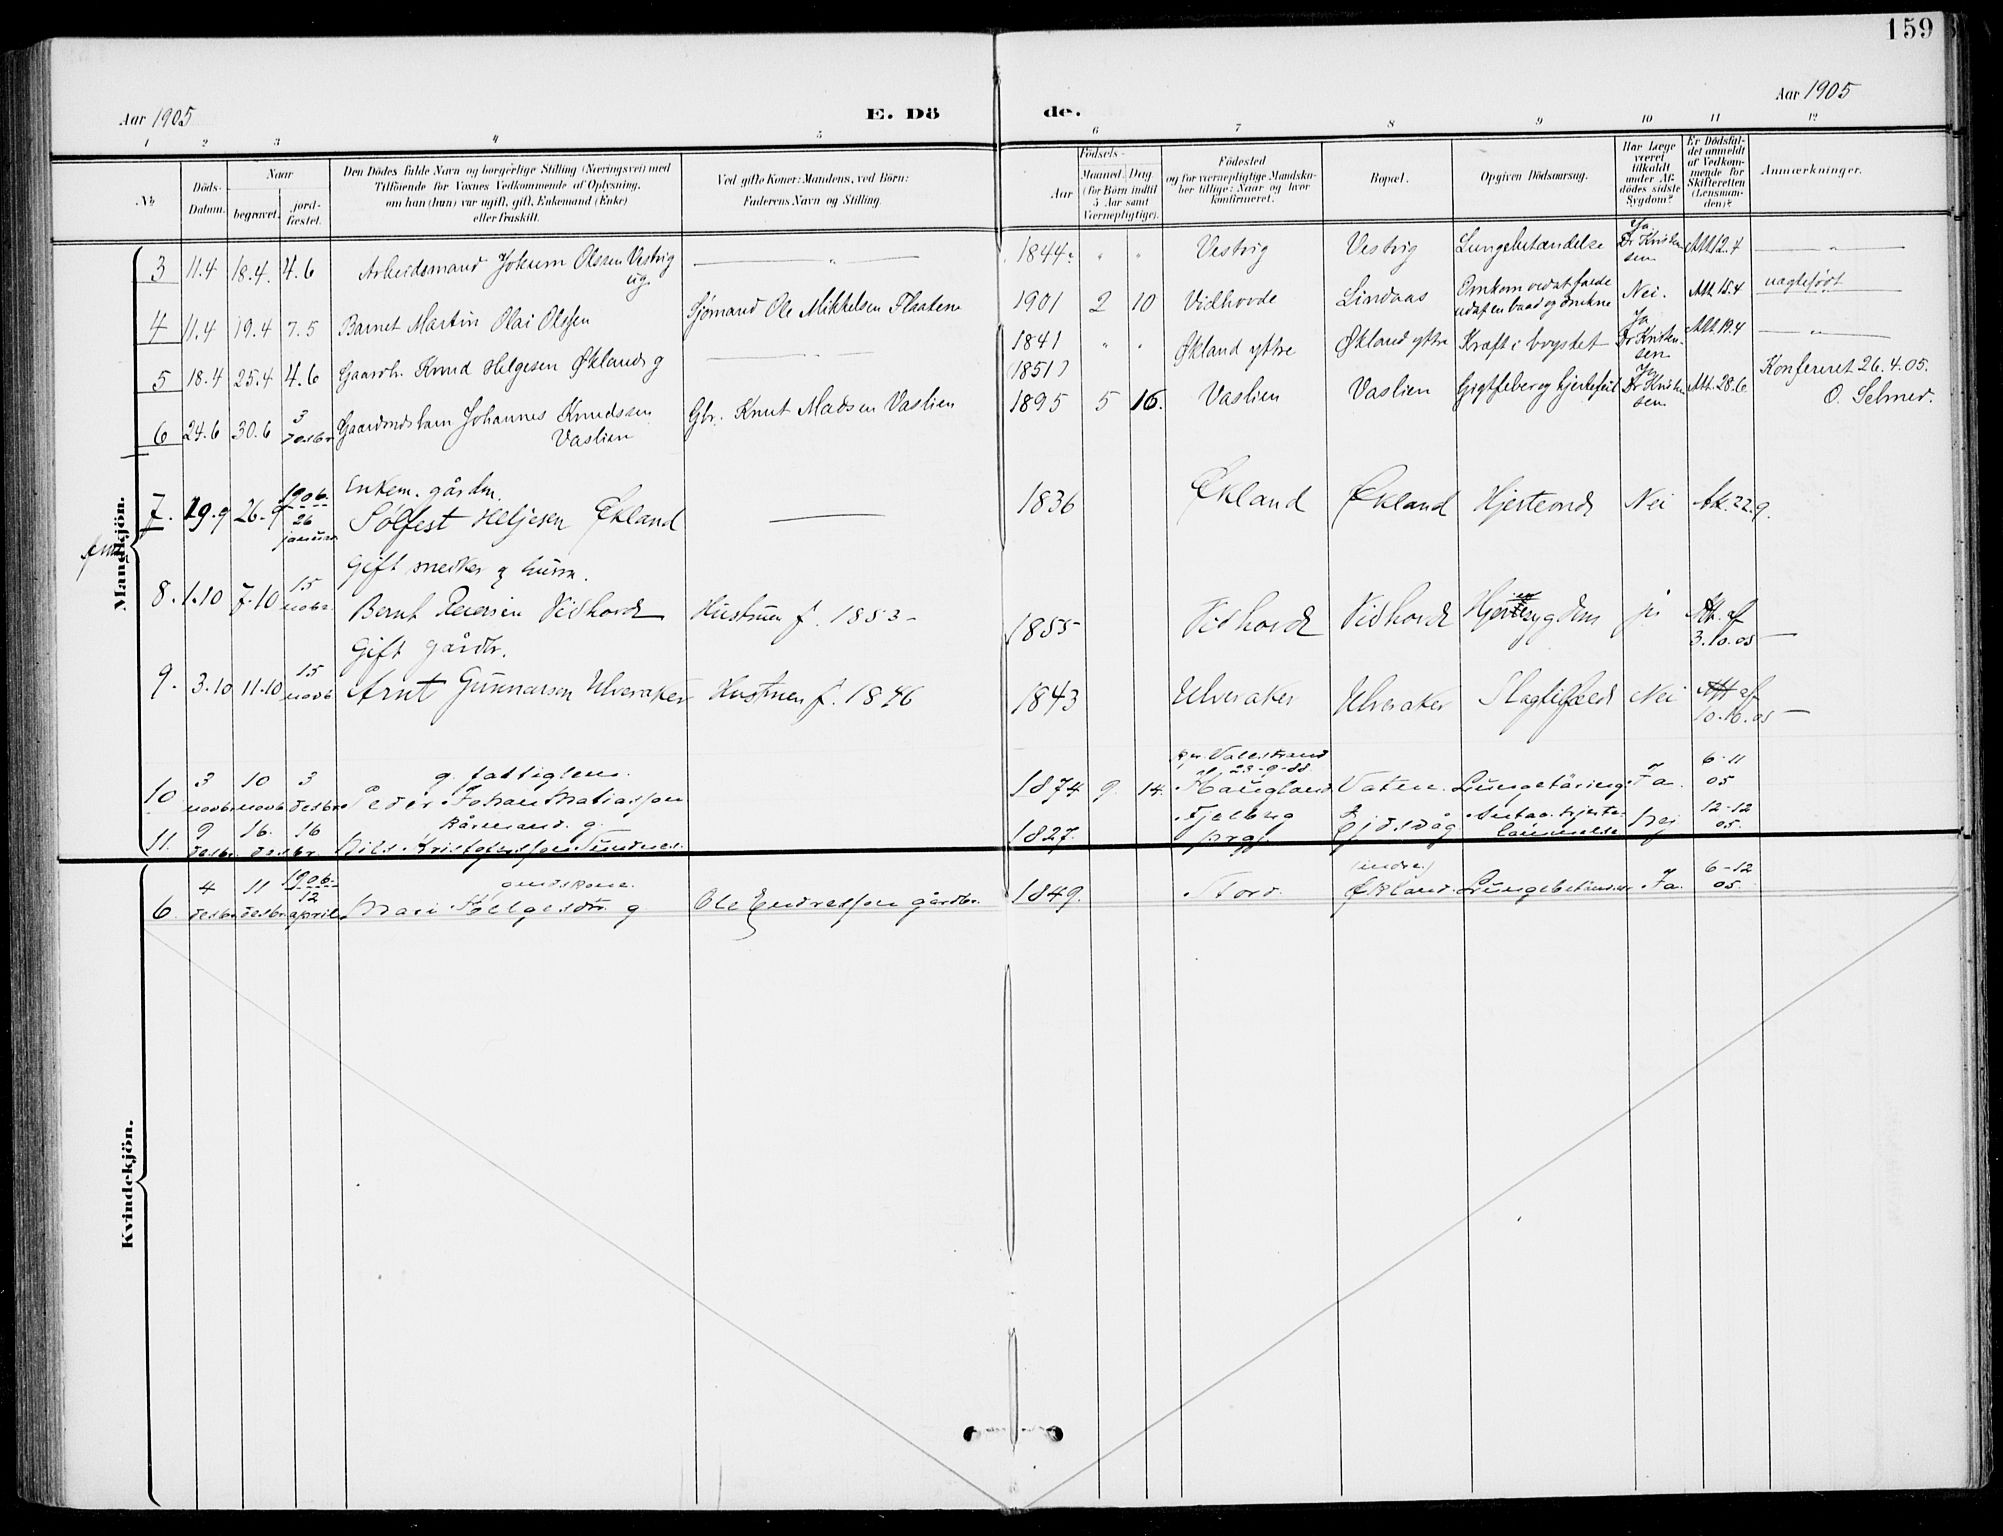 159
Aar 1905
E. Dö
de.
Aar 1905
1 2 3 4 5 6 7 8 9 10 11 12
No
Döds-Datum.
Naar
begravet.
jord-fæstet.
Den Dödes fulde Navn og borgerlige Stilling (Næringsvei) med
Tilföiende for Voxnes Vedkommende af Oplysning,
om han (hun) var ugift, gift, Enkemand (Enke)
eller fraskilt.
Ved gifte Koner: Mandens, ved Börn:
Faderens Navn og Stilling.
Födsels-
Aar
Maaned. Dag
(for Börn indtil
5 Aar samt
Værnepligtige).
Födested
og for værnepligtige Mandskaber tillige: Naar og hvor
konfirmeret.
Bopæl.
Opgiven Dödsaarsag.
Har Læge
været
tilkaldt
under Afdödes sidste
Sygdom?
Er Dödsfaldet anmeldt
af Vedkommende for
Skifteretten
(Lensmanden)?
Anmærkninger.
Mandkjön.
3 11.4 18.4. 4.6 Arbeidsmand Jokum Olssen Vestvig ug. — " — 1844. " " Vestvig Vestvig Lungebetændelse Ja Dr Kristensen Att 12.4 — " —
4 11.4 19.4 7.5 Barnet Martin Olai Olssen Sjømand Ole Mikkelsen Flaatene 1901 2 10 Vidhovde Lindaas Omkom ved at falde ud af en baad og drukne Nei. Att 15.4 uægtefødt
5 18.4 25.4 4.6 Gaardbr. Knud Helgesen Økland g — " — 1841 (1851) " " Økland yttre Økland yttre Kræft i brystet Ja Dr Kristensen Att 19.4 — " —
Konfereret 26.4.05.
O. Selmer.
6 24.6 30.6 3 desbr Gaardmdsbarn Johannes Knudssen Vaslien Gbr. Knut Madsen Vaslien 1895 5 16. Vaslien Vaslien Gigtfeber og hjertefeil Ja Dr Kristensen Att. 28.6
7. 19.9 26-9 1906 26 januar Enkem. gårdm. Sølfest Heljesen Økland — 1836 Økland Økland Hjerteonde Nei Att. 22.9.
8. 1.10 7-10 15 novbr. Gift snedker g husm. Bernt Vidhovde Hustruen f. 1853 - 1855 Vidhovde Vidhovde Hjertesygdom ja Att. af 3.10.05
9. 3.10 11.10 15 novb Gift gårdbr. Arnt Gunnarson Ulveraker Hustruen f. 1846 1843 Ulveraker Ulveraker Slagtilfæld Nei Att af 10.10.05
10 3 novbr 10 novbr 3 desbr g. fattiglem. Peder Johan Matiassen 1874 9. 14. kon. Valestrand 23-9-88 Haugland Vaten. Lungetæring Ja. 6-11 05
11. 9 desbr 16. desbr. 16 Kårmand. g. Nils Kristofersson 1827. Fjelberg prgj. Eidsvåg Nei 12-12 05.
Kvindekjön.
6. 4 desbr. 11 desbr. 1906 12 april. gmdskone. Mari Helgesdtr. g. Ole Endresson gårdbr. 1849. Stord. (indre) Økland. Lungebetændelse Ja. 6-12 05.